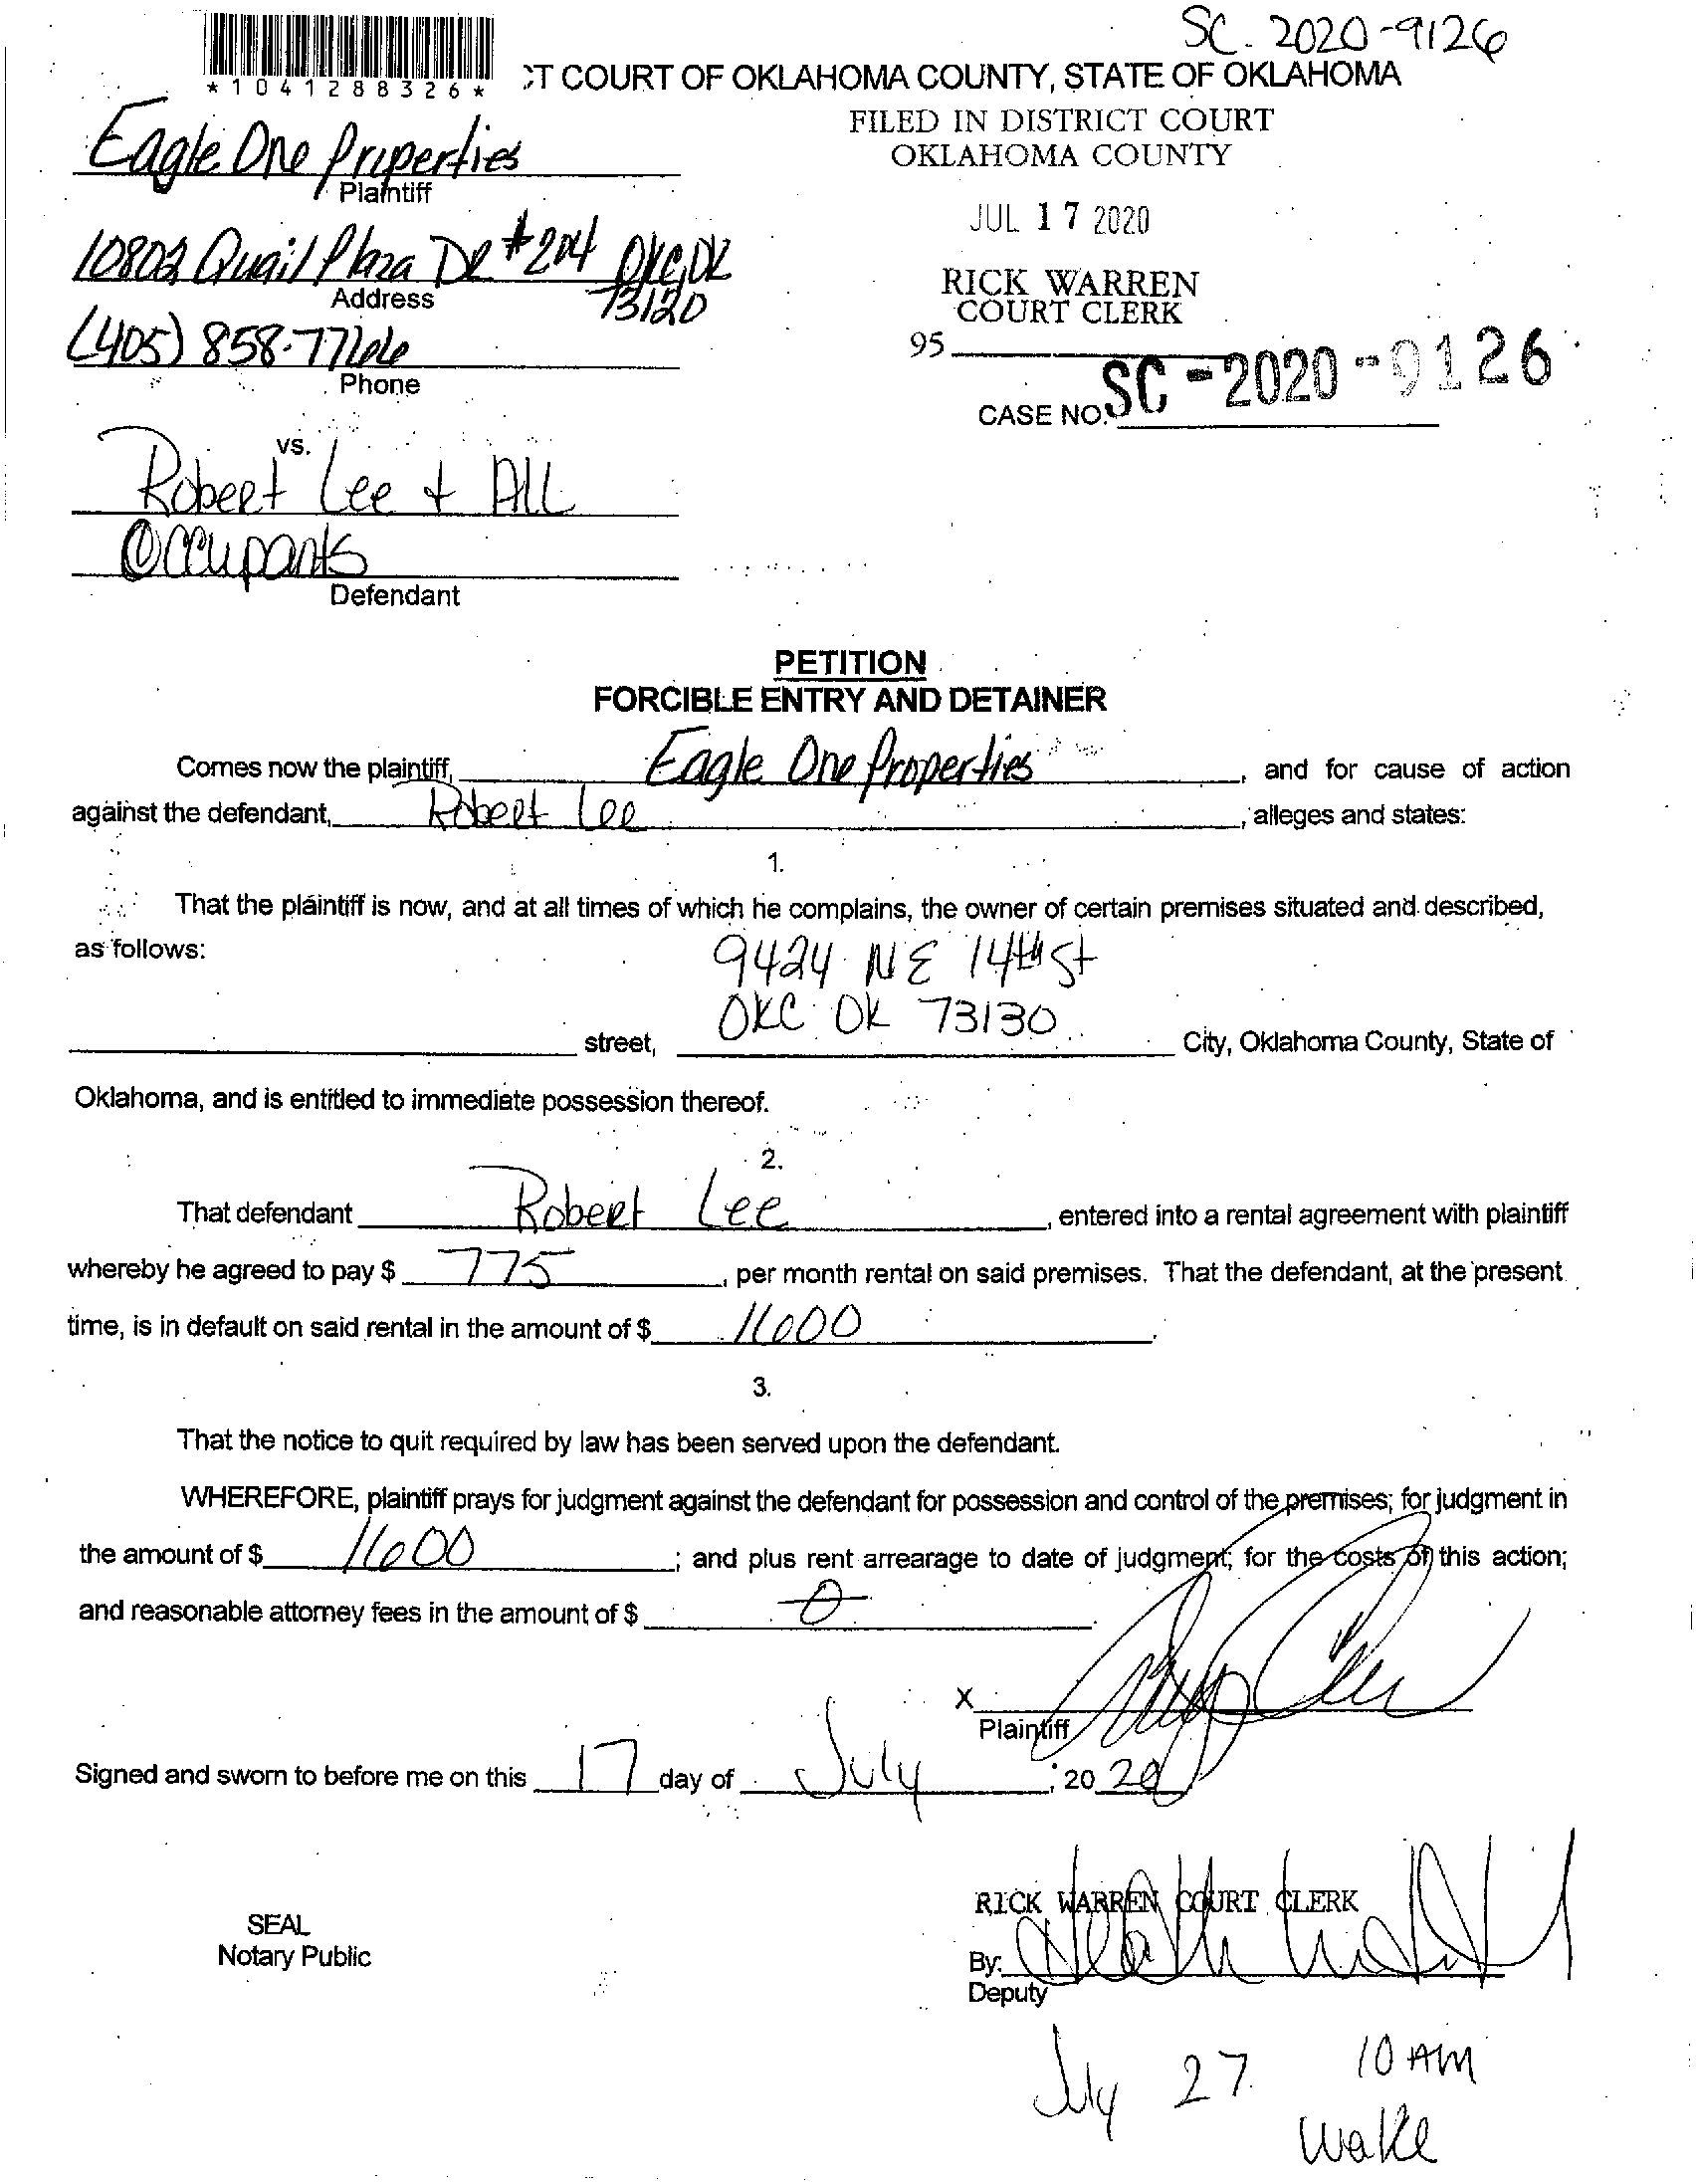 SC-2020-9126
*1041288326*
CT COURT OF OKLAHOMA COUNTY, STATE OF OKLAHOMA
FILED IN DISTRICT COURT
OKLAHOMA COUNTY
Eagle One Properties
Plaintiff
JUL 17 2020
10802 Quail Plaza DR #204 OKC, OK
73120
Address
RICK WARREN
COURT CLERK
(405) 858-7766
Phone
95
CASE NO. SC-2020-9126
vs.
Robert Lee + ALL
Occupants
Defendant
PETITION
FORCIBLE ENTRY AND DETAINER
Comes now the plaintiff, Eagle One Properties, and for cause of action
against the defendant, Robert Lee, alleges and states:
1.
That the plaintiff is now, and at all times of which he complains, the owner of certain premises situated and described,
as follows: 9424 NE 14th St
OKC OK 73130
street, City, Oklahoma County, State of
Oklahoma, and is entitled to immediate possession thereof.
2.
That defendant Robert Lee, entered into a rental agreement with plaintiff
whereby he agreed to pay $ 775, per month rental on said premises. That the defendant, at the present
time, is in default on said rental in the amount of $ 1600.
3.
That the notice to quit required by law has been served upon the defendant.
WHEREFORE, plaintiff prays for judgment against the defendant for possession and control of the premises; for judgment in
the amount of $ 1600; and plus rent arrearage to date of judgment; for the costs of this action;
and reasonable attorney fees in the amount of $ 0.
X
Plaintiff
Signed and sworn to before me on this 17 day of July, 2020
RICK WARREN COURT CLERK
SEAL
Notary Public
By:
Deputy
July 27 10 AM
Wake